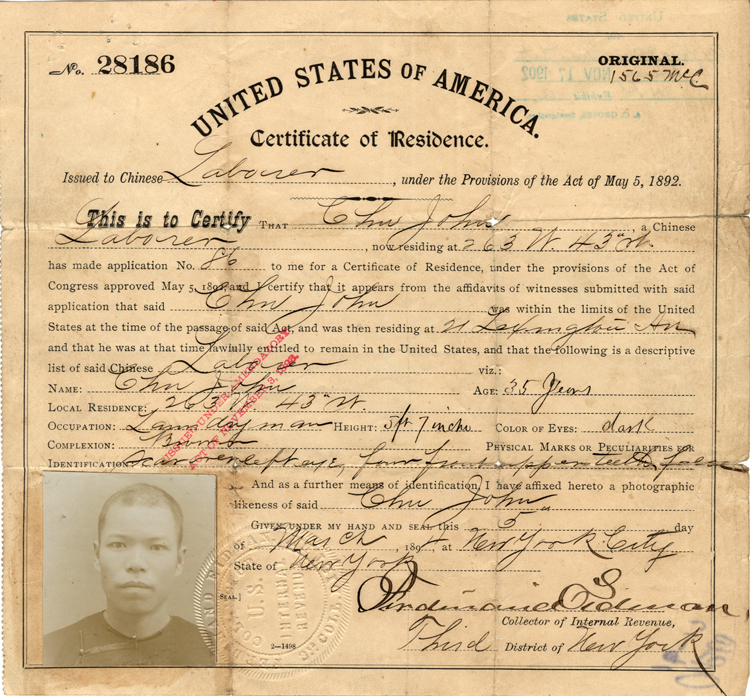 UNITED STATES
No. 28186
ORIGINAL.
1565 McC
NOV 17 1902
UNITED STATES OF AMERICA.
Certificate of Residence.
Issued to Chinese Laborer, under the Provisions of the Act of May 5, 1892.
This is to Certify THAT Chu John, a Chinese
Laborer, now residing at 263 W. 43" st.
has made application No. 86 to me for a Certificate of Residence, under the provisions of the Act of
Congress approved May 5, 1892, and I certify that it appears from the affidavits of witnesses submitted with said
application that said Chu John was within the limits of the United
States at the time of the passage of said Act, and was then residing at 21 Lexington Av
and that he was at that time lawfully entitled to remain in the United States, and that the following is a descriptive
list of said Chinese Laborer viz.:
NAME: Chu John AGE: 35 Years
LOCAL RESIDENCE: 263 W 43" st
OCCUPATION: Laundryman HEIGHT: 5 ft 7 inche COLOR OF EYES: dark
COMPLEXION: PHYSICAL MARKS OR PECULIARITIES FOR
IDENTIFICATION: Scar over left eye, four front upper teeth false
ISSUED UNDER AMENDATORY
ACT OF NOVEMBER 3, 1893.
And as a further means of identification, I have affixed hereto a photographic
likeness of said Chu John
GIVEN UNDER MY HAND AND SEAL this 5" day
of March, 1894, at New York City
State of New York
SEAL.]
U.S.
INTERNAL
REVENUE
2—1498
Ferdinand Eidman,
Collector of Internal Revenue,
Third District of New York